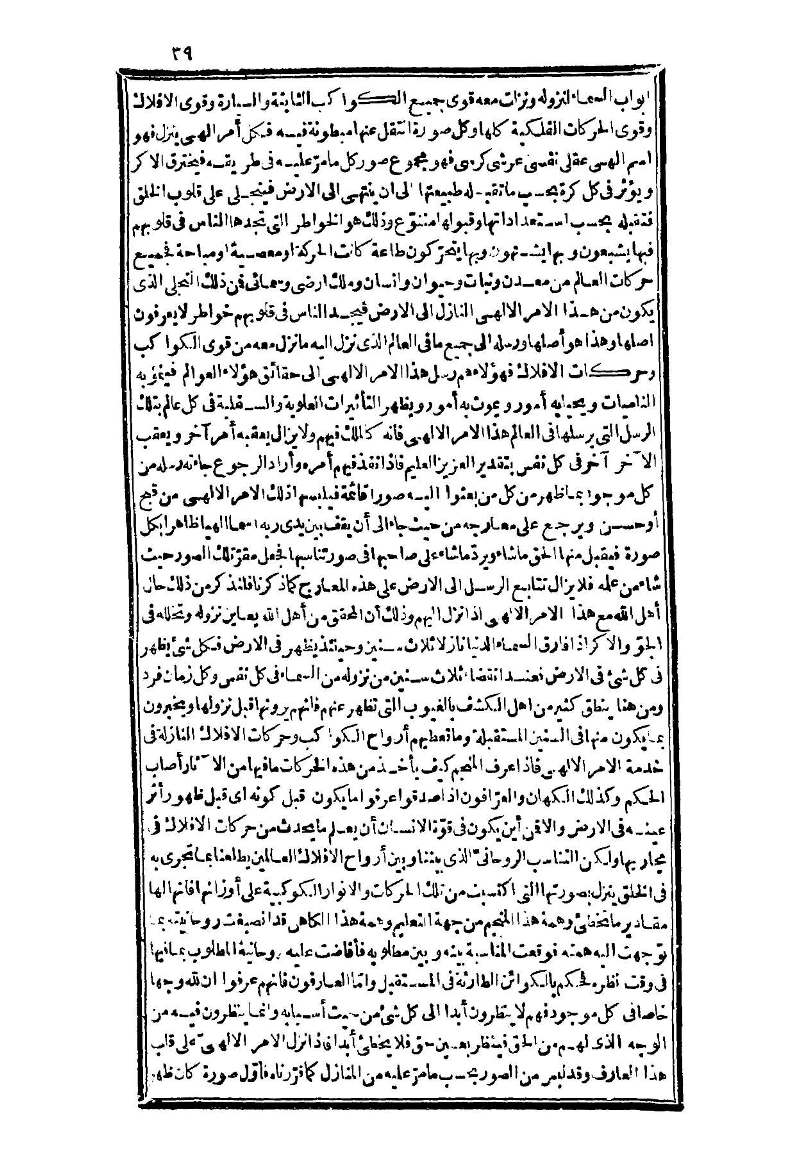 ٣٩
ابواب السماء لنزوله ونزلت معه قوى جميع الكواكب الثابتة والسيارة وقوى الافلاك
وقوى الحركات الفلكية كلها وكل صورة انتقل عنها مبطونة فيه فكل أمر الهى ينزل فهو
اسم الهى عقلى نفسى عرشى كرسى فهو مجموع صور كل مامر عليه فى طريقه فيخترق الاكر
ويؤثر فى كل كرة بحسب ماتقبله طبيعتها الى ان ينتهى الى الارض فيتجلى على قلوب الخلق
فتقبله بحسب استعداداتها وقبولها متنوع وذلك هو الخواطر التى تجدها الناس فى قلوبهم
فبها يسعون وبها يشتهون وبها يتحركون طاعة كانت الحركة او معصية او مباحة فجميع
حركات العالم من معدن ونبات وحيوان وانسان وملك ارضى وسمائى فمن ذلك التجلى الذى
يكون من هذا الامر الالهى النازل الى الارض فيجد الناس فى قلوبهم خواطر لا يعرفون
اصلها وهذا هو أصلها ورسله الى جميع مافى العالم الذى نزل اليه مانزل معه من قوى الكواكب
وحركات الافلاك فهؤلاء هم رسل هذا الامر الالهى الى حقائق هؤلاء العوالم فينمو به
الناميات ويحيا به أمور ويموت به أمور ويظهر التأثيرات العلوية والسفلية فى كل عالم بتلك
الرسل التى يرسلها فى العالم هذا الامر الالهى فانه كالملك فيهم ولا يزال يعقبه أمر آخر ويعقب
الآخر آخر فى كل نفس بتقدير العزيز العليم فاذا نفذ فيهم أمره وأراد الرجوع جاءته رسله من
كل موجود بما ظهر من كل من بعثوا اليه صورا قائمة فيلبسها ذلك الامر الالهى من قبيح
أو حسن ويرجع على معارجه من حيث جاء الى أن يقف بين يدى ربه اسما الهيا ظاهرا بكل
صورة فيقبل منها الحق ماشاء ويرد ماشاء على صاحبها فى صور تناسبها فجعل مقر تلك الصور حيث
شاء من علمه فلا يزال تتابع الرسل الى الارض على هذه المعاريج كما ذكرنا فلنذكر من ذلك حال
أهل الله مع هذا الامر الالهى اذا نزل اليهم وذلك أن المحقق من أهل الله يعاين نزوله وتخلله فى
الجو والاكر اذا فارق السماء الدنيا نازلا ثلاث سنين وحينئذ يظهر فى الارض فكل شئ يظهر
فى كل شئ فى الارض فعند انقضاء ثلاث سنين من نزوله من السماء فى كل نفس وكل زمان فرد
ومن هنا ينطق كثير من اهل الكشف بالغيوب التى تظهر عنهم فانهم يرونها قبل نزولها ويخبرون
بما يكون منها فى السنين المستقبلة وما تعطيهم أرواح الكواكب وحركات الافلاك النازلة فى
خدمة الامر الالهى فاذا عرف المنجم كيف يأخذ من هذه الحركات مافيها من الآثار أصاب
الحكم وكذلك الكهان والعرافون اذا صدقوا عرفوا ما يكون قبل كونه اى قبل ظهور أثر
عينه فى الارض والا فمن أين يكون فى قوة الانسان أن يعلم ما يحدث من حركات الافلاك فى
مجاريها ولكن التناسب الروحانى الذى بيننا وبين أرواح الافلاك العالمين يطلعنا بما تجرى به
فى الخلق ينزل بصورتها التى اكتسبت من تلك الحركات والانوار الكوكبية على أوزانها فانها لها
مقادير ما تخطئ وهمة هذا المنجم من جهة التعليم وهمة هذا الكاهن قد انصبغت روحانيته بما
توجهت اليه همته فوقعت المناسبة بينه وبين مطلوبه فأفاضت عليه روحانية المطلوب بما فيها
فى وقت نظره فحكم بالكوائن الطارئة فى المستقبل وأما العارفون فانهم عرفوا ان لله وجها
خاصا فى كل موجود فهم لا ينظرون أبدا الى كل شئ من حيث أسبابه وانما ينظرون فيه من
الوجه الذى لهم من الحق فينظر بعين حق فلا يخطئ أبدا فاذا نزل الامر الالهى على قلب
هذا العارف وقد لبس من الصور بحسب مامر عليه من المنازل كما قررناه فأول صورة كان ظهر